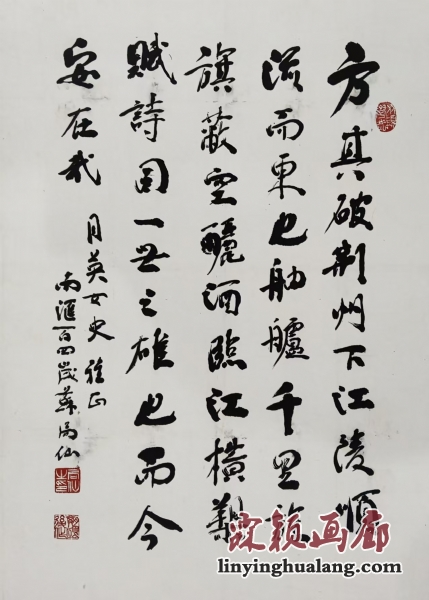 方其破荊州下江陵順
流而東也舳艫千里旌
旗蔽空釃酒臨江橫槊
賦詩固一世之雄也而今
安在哉
月英女史雅正
南滙百四歲蘇局仙
琳颖画廊
linyinghualang.com